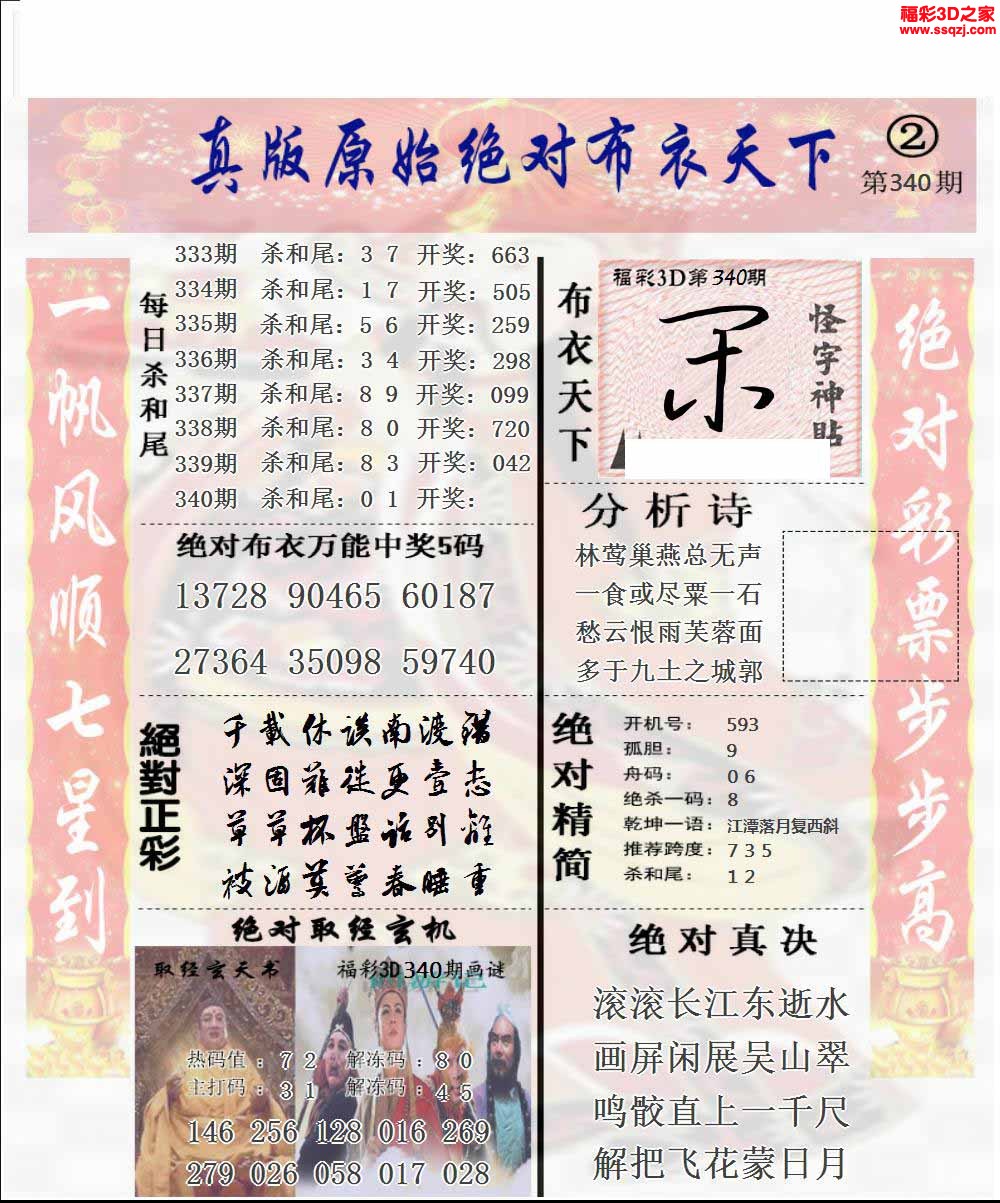 福彩3D之家
www.ssqzj.com
真版原始绝对布衣天下
②
第340期
一帆风顺七星到
每日杀和尾
333期 杀和尾：3 7 开奖：663
334期 杀和尾：1 7 开奖：505
335期 杀和尾：5 6 开奖：259
336期 杀和尾：3 4 开奖：298
337期 杀和尾：8 9 开奖：099
338期 杀和尾：8 0 开奖：720
339期 杀和尾：8 3 开奖：042
340期 杀和尾：0 1 开奖：
绝对布衣万能中奖5码
13728 90465 60187
27364 35098 59740
絕對正彩
千载休谈南渡错
深固难徙更壹志
草草杯盘话别离
被酒莫惊春睡重
绝对取经玄机
取经玄天书
福彩3D340期画谜
热码值：7 2 解冻码：8 0
主打码：3 1 解冻码：4 5
146 256 128 016 269
279 026 058 017 028
布衣天下
福彩3D第340期
怪字神贴
分析诗
林莺巢燕总无声
一食或尽粟一石
愁云恨雨芙蓉面
多于九土之城郭
绝对精简
开机号：593
孤胆：9
舟码：0 6
绝杀一码：8
乾坤一语：江潭落月复西斜
推荐跨度：7 3 5
杀和尾：1 2
绝对真决
滚滚长江东逝水
画屏闲展吴山翠
鸣骹直上一千尺
解把飞花蒙日月
绝对彩票步步高